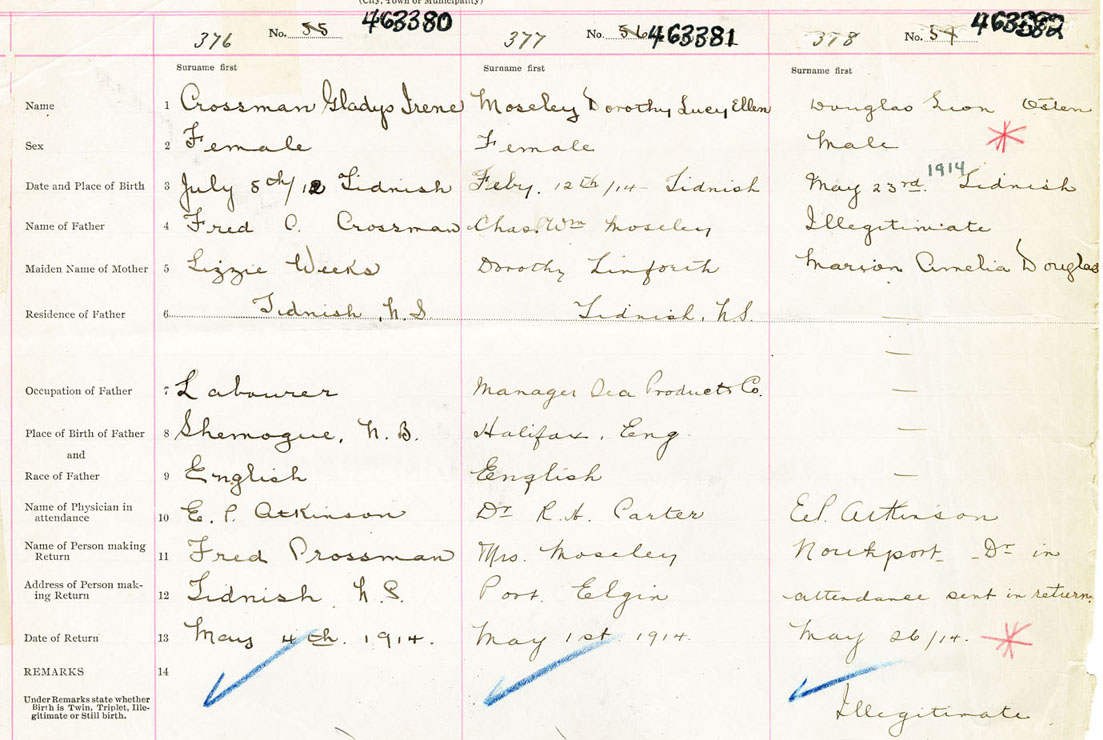 (City, Town or Municipality)
376 No. 55 463380 377 No. 56 463381 378 No. 57 463382
Surname first Surname first Surname first
Name 1 Crossman Gladys Irene Moseley Dorothy Lucy Ellen Douglas Osten
Sex 2 Female Female Male
Date and Place of Birth 3 July 8th/12 Tidnish Feby. 12th/14 - Tidnish May 23rd. 1914 Tidnish
Name of Father 4 Fred C. Crossman Chas. Wm Moseley Illegitimate
Maiden Name of Mother 5 Lizzie Weeks Dorothy Linforth Marion Amelia Douglas
Residence of Father 6 Tidnish, N.S. Tidnish, N.S. —
—
Occupation of Father 7 Labourer Manager Sea Products Co. —
Place of Birth of Father 8 Shemogue, N.B. Halifax, Eng. —
and
Race of Father 9 English English —
Name of Physician in
attendance 10 E. P. Atkinson Dr R.A. Carter E.P. Atkinson
Name of Person making
Return 11 Fred Crossman Mrs. Moseley Northport - Dr in
Address of Person mak-
ing Return 12 Tidnish, N.S. Port Elgin attendance sent in return
Date of Return 13 May 4th. 1914. May 1st. 1914. May 26/14.
REMARKS 14
Under Remarks state whether
Birth is Twin, Triplet, Ille-
gitimate or Still birth. Illegitimate